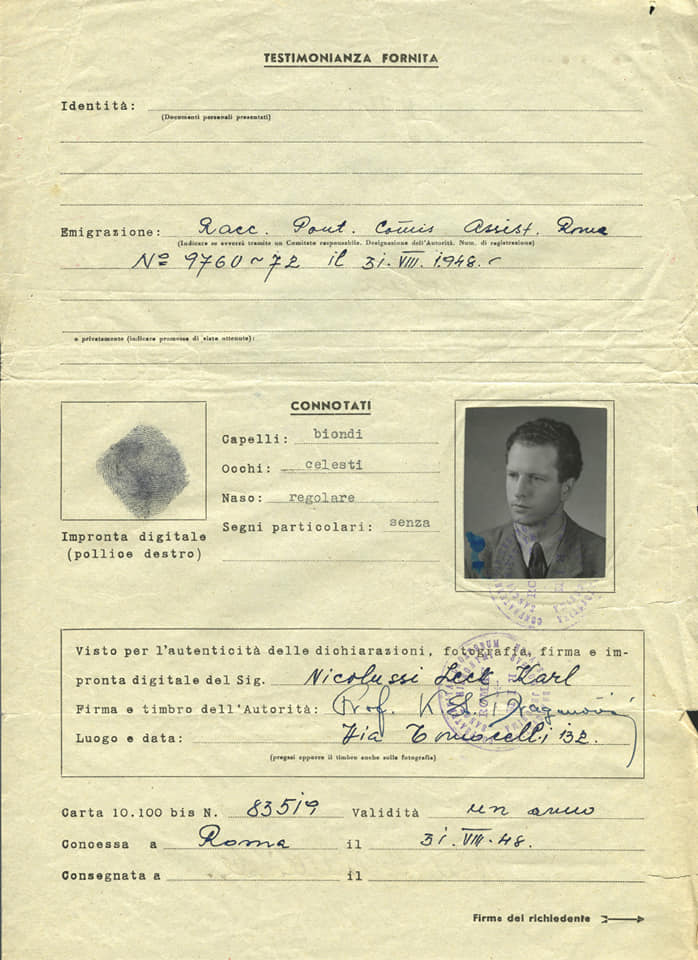 TESTIMONIANZA FORNITA
Identità:
(Documenti personali presentati)
Emigrazione: Racc. Pont. Com̃is Assist. Roma
(Indicare se avverrà tramite un Comitato responsabile. Designazione dell'Autorità. Num. di registrazione)
Nº 9760~72 il 31.VIII.1948.
o privatamente (indicare promessa di visto ottenute):
CONNOTATI
Capelli: biondi
Occhi: celesti
Naso: regolare
Segni particolari: senza
Impronta digitale
(pollice destro)
Visto per l'autenticità delle dichiarazioni, fotografia, firma e im-
pronta digitale del Sig. Nicolussi Leck Karl
Firma e timbro dell'Autorità: Prof. K. S. Draganović
Luogo e data: Via Tomacelli 132.
(pregasi apporre il timbro anche sulla fotografia)
Carta 10.100 bis N. 83519 Validità un anno
Concessa a Roma il 31.VIII.48.
Consegnata a il
Firma del richiedente